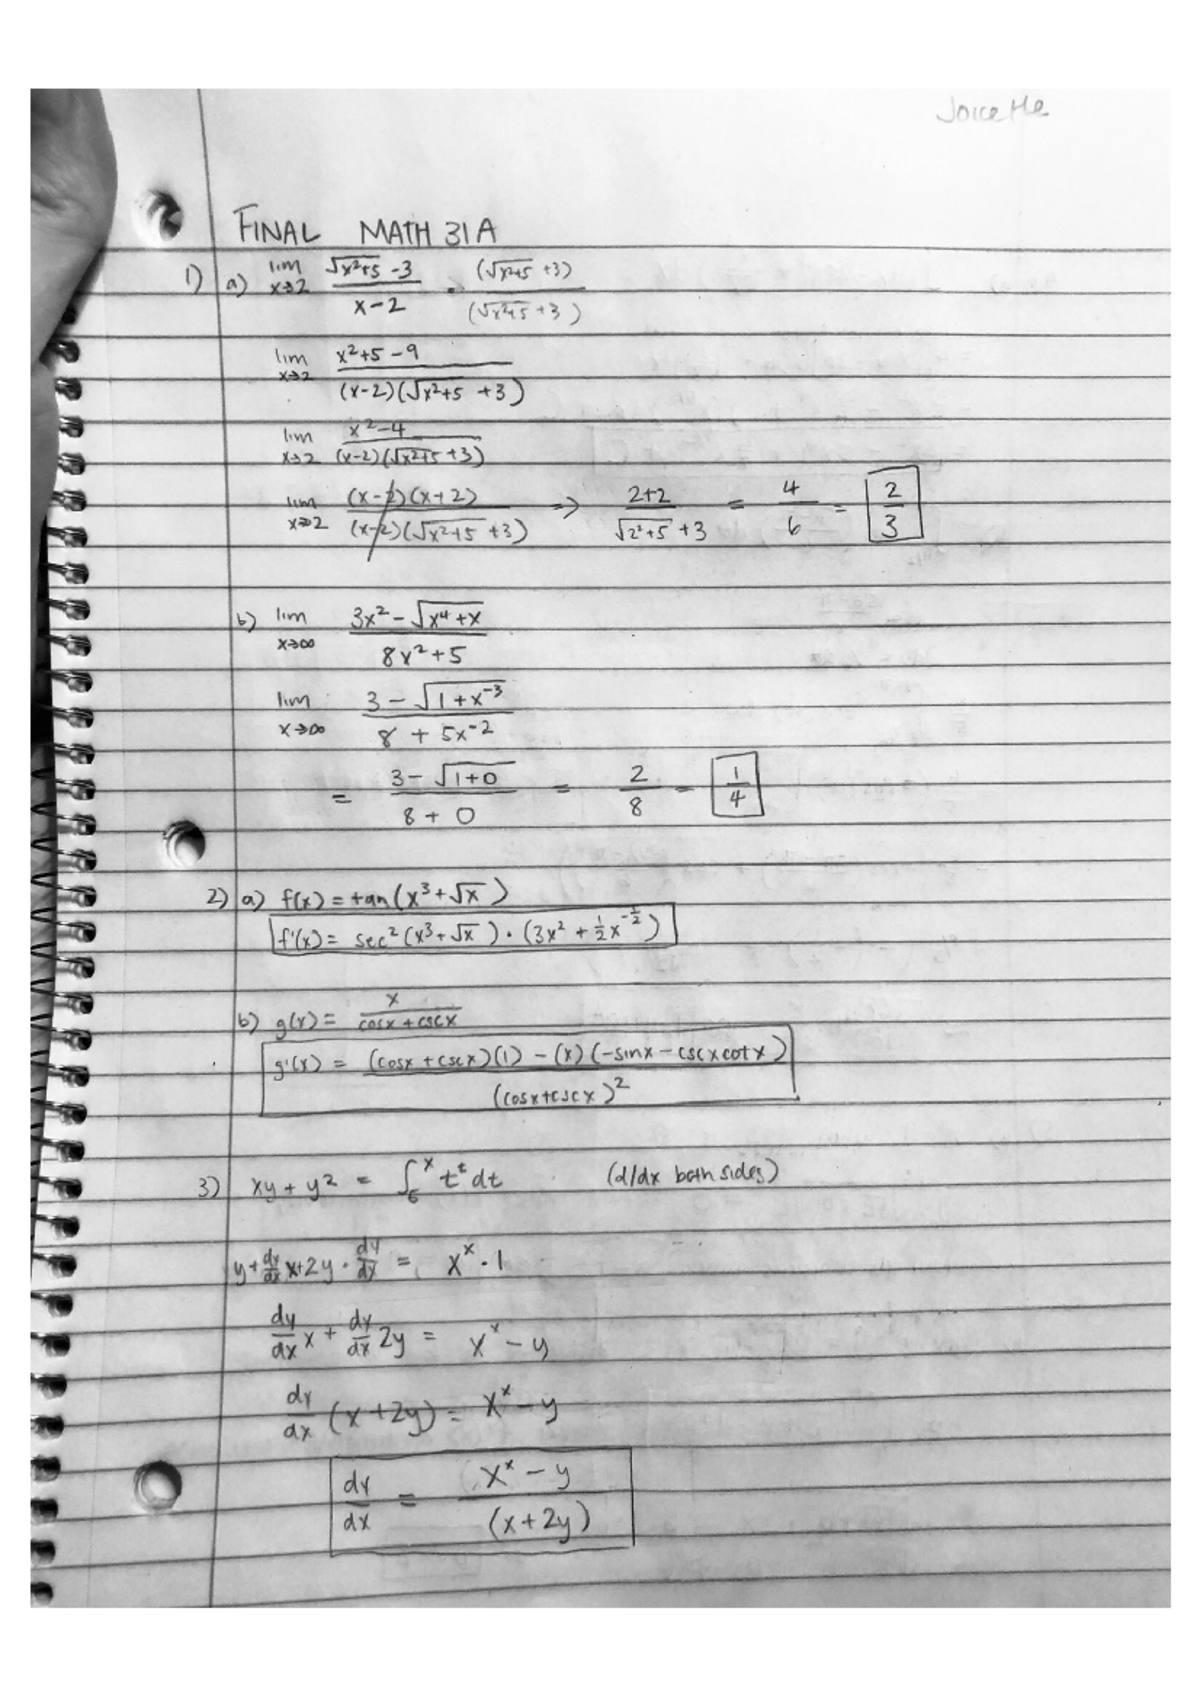 Joice He
FINAL MATH 31A
1) a) lim x→2 (√(x²+5) - 3)/(x-2) · (√(x²+5) + 3)/(√(x²+5) + 3)
lim x→2 (x²+5-9)/((x-2)(√(x²+5) + 3))
lim x→2 (x²-4)/((x-2)(√(x²+5) + 3))
lim x→2 ((x-2)(x+2))/((x-2)(√(x²+5) + 3)) => (2+2)/(√(2²+5) + 3) = 4/6 = 2/3
b) lim x→∞ (3x² - √(x⁴+x))/(8x²+5)
lim x→∞ (3 - √(1+x⁻³))/(8 + 5x⁻²)
= (3 - √(1+0))/(8 + 0) = 2/8 = 1/4
2) a) f(x) = tan(x³+√x)
f'(x) = sec²(x³+√x) · (3x² + ½x^(-½))
b) g(x) = x/(cosx + cscx)
g'(x) = ((cosx + cscx)(1) - (x)(-sinx - cscxcotx))/(cosx+cscx)²
3) xy + y² = ∫₆ˣ tᵗ dt (d/dx both sides)
y + dy/dx x + 2y · dy/dx = xˣ · 1
dy/dx x + dy/dx 2y = xˣ - y
dy/dx (x+2y) = xˣ - y
dy/dx = (xˣ - y)/(x+2y)